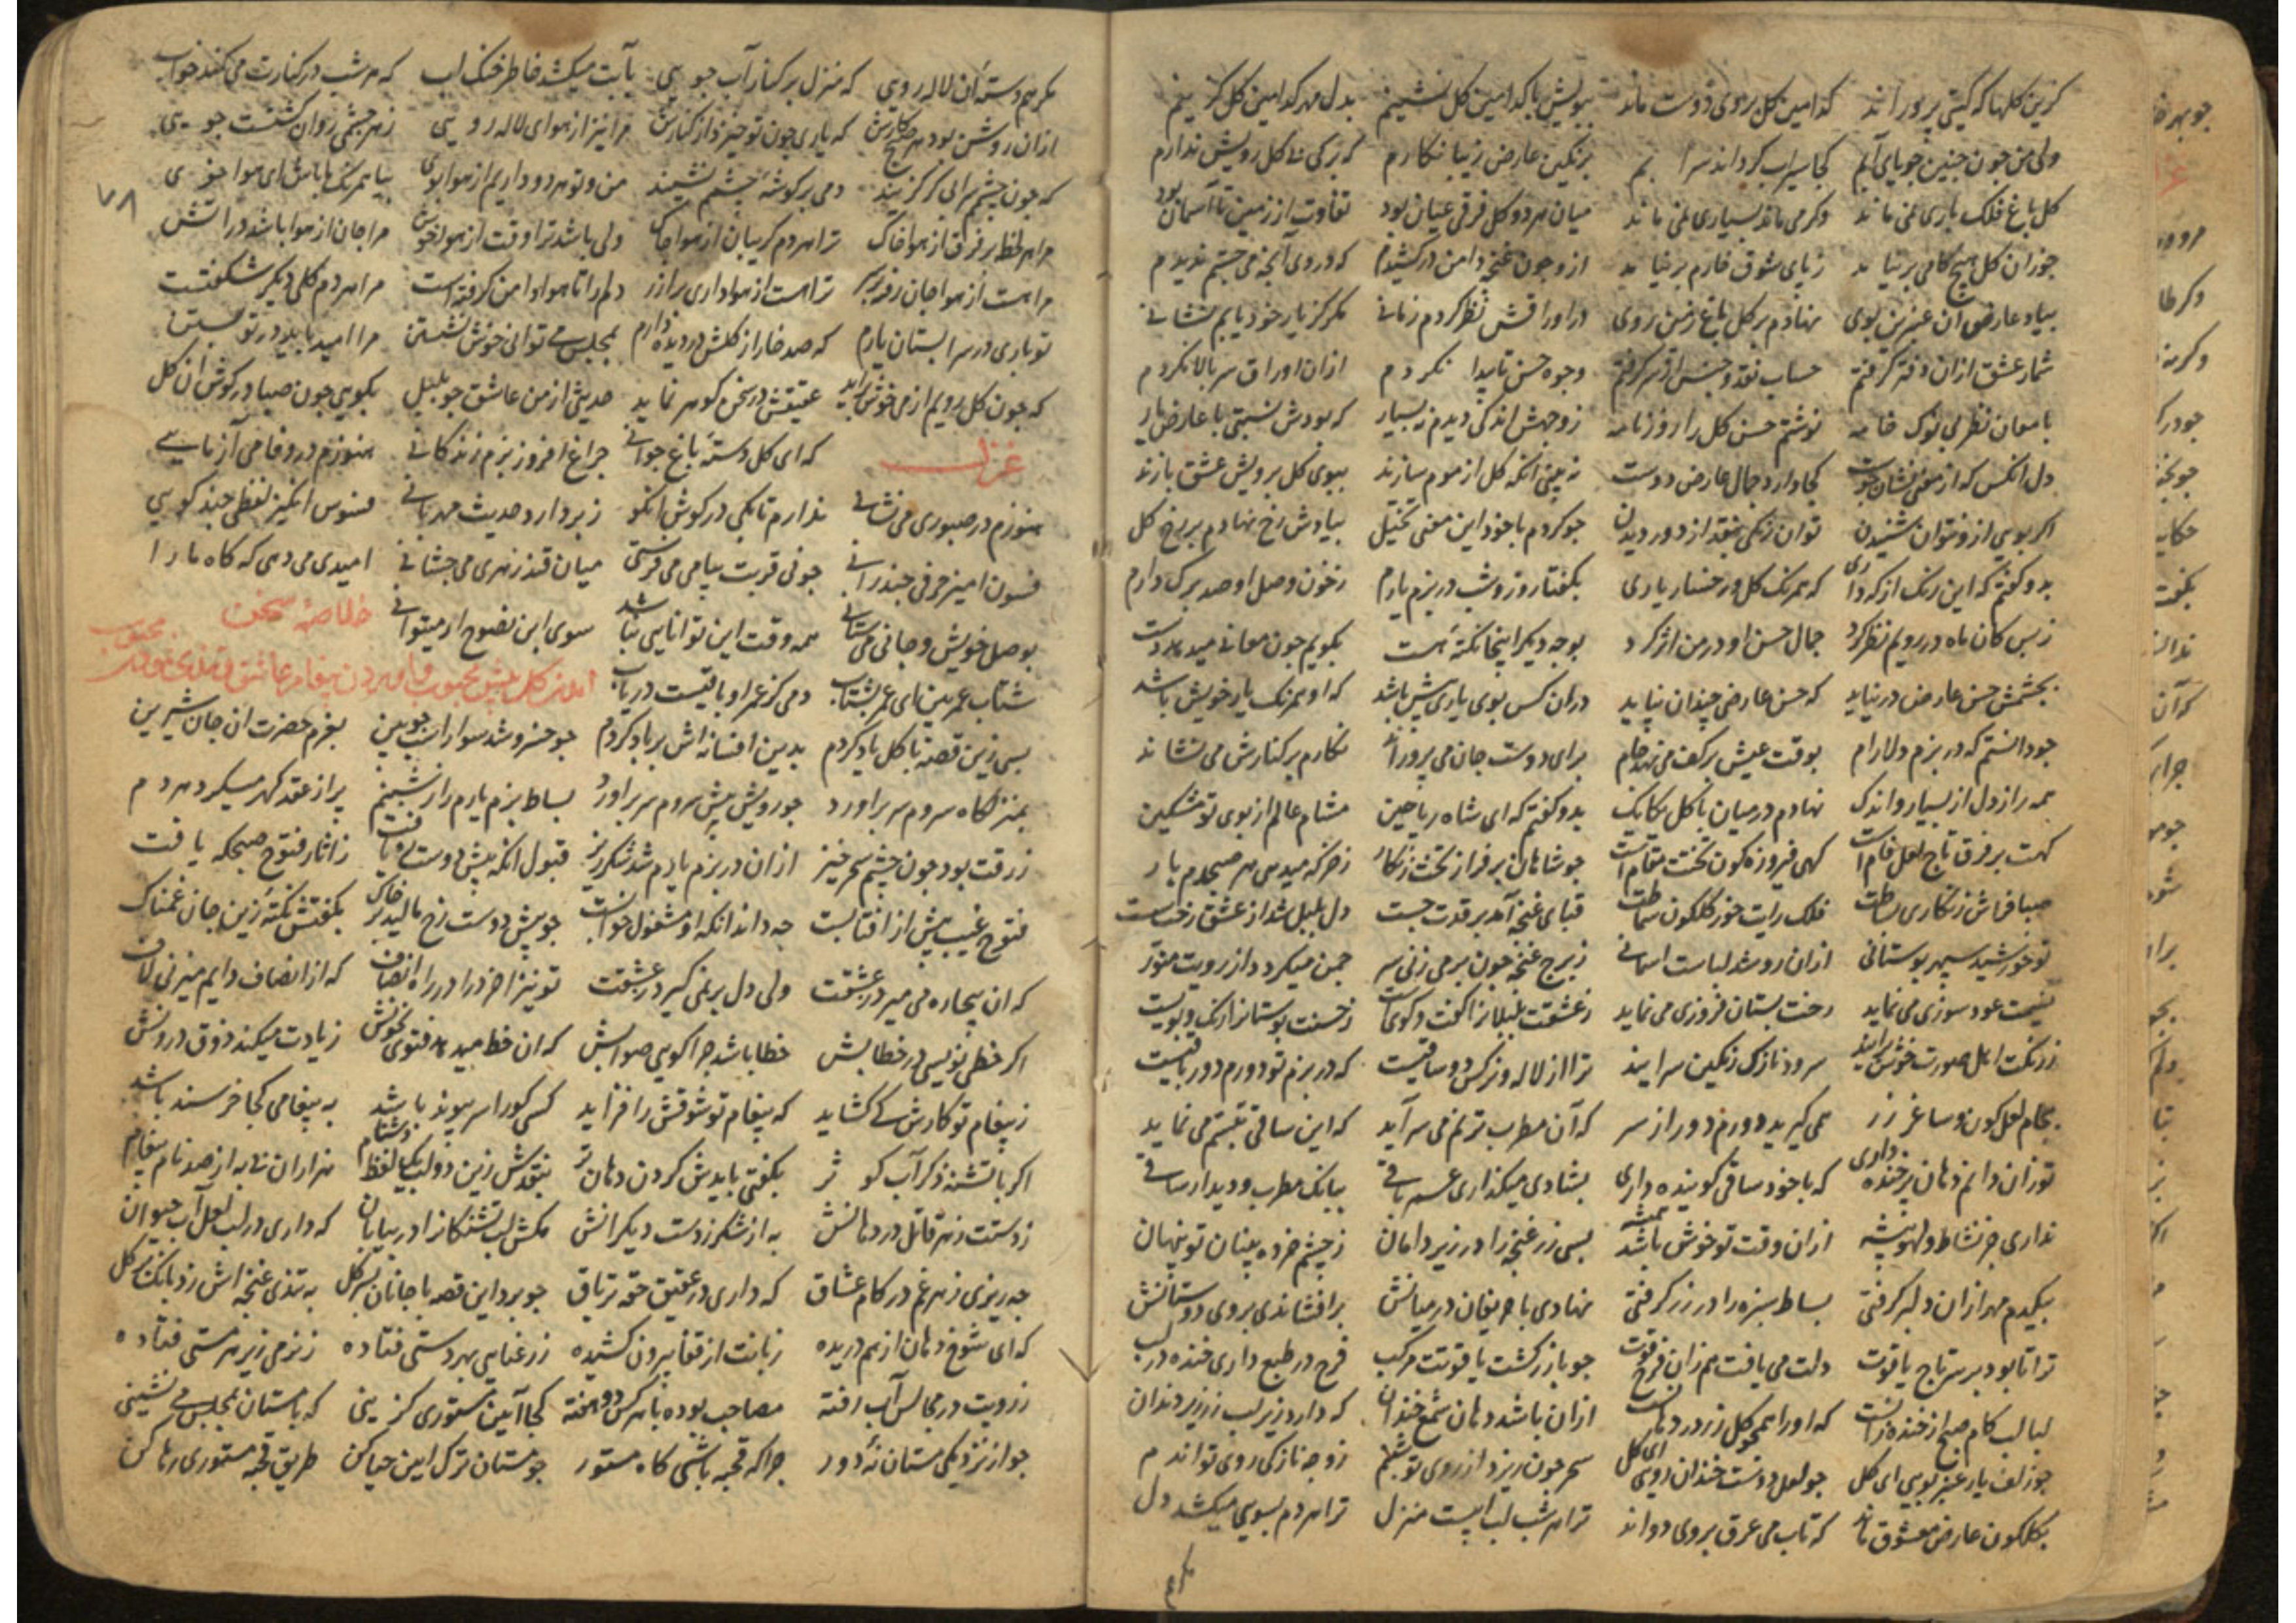 کزین کلها که کیتی پروراند کدامین کل بروی دوست ماند ببویش با کدامین کل نشینم بدل مهر کدامین کل کزینم
ولی من چون چنین جویای آبم کجا سیراب کرداند سرابم برنکین عارض زیبا نکارم که برکی نه کل رویش ندارم
کل باغ فلک باری نمی ماند وکر می ماند بسیاری نمی ماند میان هر دو کل فرقی عیان بود تفاوت از زمین تا آسمان بود
چو زان کل هیچ کامی بر نیامد ز پای شوق خارم بر نیامد ازو چون غنچه دامن در کشیدم که در وی آنچه می جستم ندیدم
بیاد عارض آن عنبرین بوی نهادم بر کل باغ زمین روی در اوراقش نظر کردم زمانی مکر کز یار خود یابم نشانی
شمار عشق ازان دفتر کرفتم حساب نقد و جنس از سر کرفتم وجوه حسن نا پیدا نکردم ازان اوراق سر بالا نکردم
بامعان نظر بی نوک خامه نوشتم حسن کل را روزنامه ز وجهش اندکی دیدم ز بسیار که بودش نسبتی با عارض یار
دل انکس که از معنی نشان جوست کجا دارد جمال عارض دوست نه بینی انکه کل از موم سازند ببوی کل برویش عشق بازند
اکر بویی ازو نتوان شنیدن توان رنکی بنقد از دور دیدن چو کردم با خود این معنی تخیل بیادش رخ نهادم بر رخ کل
بدو کفتم که این رنک از که داری که همرنک کل رخسار یاری بکفتا روز و شب در بزم یارم ز خون وصل او صد برک دارم
ز بس کان ماه در رویم نظر کرد جمال حسن او در من اثر کرد بوجه دیکر اینجا نکته هست بکویم چون معانی میدهد دست
بچشمش حسن عارض در نیاید که حسن عارضی چندان نپاید دران کس بوی یاری بیش باشد که او همرنک یار خویش باشد
چو دانستم که در بزم دلارام بوقت عیش بر کف می نهد جام برای دوست جان می پروراند نکارم بر کنارش می نشاند
همه راز دل از بسیار و اندک نهادم در میان با کل یکایک بدو کفتم که ای شاه ریاحین مشام عالم از بوی تو مشکین
کهت بر فرق تاج لعل فام است کهی فیروزه کون تختت مقام است چو شاهان بر فراز تخت زنکار ز خرکه میدمی هر صبحدم بار
صبا فراش زنکاری بساطت فلک رایت خور کلکون سماطت قبای غنچه آمد بر قدت چست دل بلبل شد از عشق رخت سست
تو خورشید سپهر بوستانی ازان رو شد لباست اسمانی ز برج غنچه چون بر می زنی سر چمن میکردد از رویت منور
نسیمت عود سوزی می نماید رخت بستان فروزی می نماید ز عشقت بلبلانرا کفت و کویست ز حسنت بوستانرا رنک و بویست
ز رنکت اهل صورت خوش برایند سرود نازک رنکین سرایند ترا از لاله و نرکس دو ساقیست که در بزم تو دورم دور باقیست
بجام لعل کون و ساغر زر همی کیرید دورم دور از سر که آن مطرب ترنم می سراید که این ساقی تبسم می نماید
تو زان دایم دهان پر خنده داری که با خود ساقی کوینده داری بشادی میکذاری عمر باقی ببانک مطرب و دیدار ساقی
نداری جز نشاط و لهو پیشه ازان وقت تو خوش باشد همیشه بسی زر غنچه را در زیر دامان ز چشم خرده بینان تو پنهان
بیکدم مهر ازان دلبر کرفتی بساط سبزه را در زر کرفتی نهادی با حریفان در میانش بر افشاندی بروی دوستانش
ترا تا بود بر سر تاج یاقوت دلت می یافت هم زان فرح قوت چو باز رکشت یاقوتت مرکب فرح در طبع داری خنده در لب
لبالب کام صبح از خنده زانست که او را همچو کل زر در دهانست ازان باشد دهان شمع خندان که دارد زیر لب زر زیر دندان
چو زلف یار عنبر بویی ای کل چو لعل دوست خندان رویی ای کل سحر چون ریزد از روی تو شبنم ز وجه نازکی روی تو اندم
بکلکون عارض معشوق ماند که تاب می عرق بروی دواند ترا هر شب لب ابست منزل ترا هر دم بسویی میکشد دل
مکر هم
مکر هم دسته آن لاله رویی که منزل بر کنار آب جویی بآبت میکشد خاطر خنک اب که هر شب در کنارت می کند خواب
ازان روشن بود هر صبح کارش که یاری چون تو خیزد از کنارش مرا نیز از هوای لاله رویی ز هر چشمی روان کشتست جویی
که چون چشم سرابی بر کزیند دمی بر کوشه چشم نشیند من و تو هر دو داریم از هوا بوی بیا همرنک باش ای هوا جوی
مرا هر لحظه بر فرق از هوا خاک ترا هر دم کریبان از هوا چاک ولی باشد ترا وقت از هوا خوش مرا جان از هوا باشد در اتش
مرا هست از هوا جان رفته بر سر ترا هست از هواداری برازر دلم را تا هوا دامن کرفتست مرا هر دم کلی دیکر شکفتست
تو باری در سرابستان یارم که صد خار از کلش در دیده دارم بمجلس می توانی خوش نشستن مرا امید باید در تو بستن
که چون کل رویم از می خوش براید عقیقش در سخن کوهر نماید حدیثی از من عاشق چو بلبل بکویی چون صبا در کوش ان کل
غزل که ای کل دسته باغ جوانی چراغ افروز بزم زندکانی هنوزم در وفا می آزمایی
هنوزم در صبوری می نشانی ندارم تا بکی در کوش انکو ز بر دارد حدیث مهربانی فسوس انکیز لفظی چند کویی
فسون امیز حرفی چند رانی چو نی قربت پیامی می فرستی میان قند زهری می چشانی امیدی می دهی که کاه ما را
بوصل خویش و جانی می ستانی همه وقت این توانایی نباشد سوی ابن نصوح ار میتوانی خلاصه سخن
شتاب عمر بین ای عمر بشتاب دمی کز عمر او باقیست دریاب
بسی زین قصه با کل یاد کردم بدین افسانه اش بر باد کردم چو خسرو شد سوار اسب چوبین بعزم حضرت ان جان شیرین
بمنزلکاه سروم سر براورد چو رویش پیش سروم سر براورد بساط بزم یارم را ز شبنم پر از عقد کهر میکرد هر دم
ز رقت بود چون چشم سحر خیز ازان در بزم یارم شد شکرریز قبول انکه پیش دوست رو یافت ز اثار فتوح صبحکه یافت
فتوح غیب بیش از افتابست چه داند انکه او مشغول خوابست چو پیش دوست رخ مالید بر خاک بکفتش نکته زین جان غمناک
که ان بیچاره می میرد ز عشقت ولی دل بر نمی کیرد ز عشقت تو نیز اخر درا در راه انصاف که از انصاف دایم میزنی لاف
اکر خطی نویسی در خطابش خطا باشد چرا کویی صوابش که ان خط میدهد فتوی بخونش زیادت میکند ذوق درونش
ز پیغام تو کارش کی کشاید که پیغام تو شوقش را فزاید کسی کو را سر پیوند باشد به پیغامی کجا خرسند باشد
اکر با تشنه ذکر آب کوثر بکفتی بایدش کردن دهان تر بنقدش زین دو لب یک لفظ دشنام هزاران ره به از صد نام پیغام
ز دستت زهر قاتل در دهانش به از شکر ز دست دیکرانش مکش لب تشنکانرا در بیابان که داری در لب لعل آب حیوان
چه ریزی زهر غم در کام عشاق که داری در عقیق حقه تریاق چو برد این قصه با جانان بسر کل به تندی غنچه اش زد بانک بر کل
که ای شوخ دهان از هم دریده زبانت از قفا بیرون کشیده ز رعنایی بهر دستی فتاده ز نرمی زیر هر مستی فتاده
ز رویت در مجالس آب رفته مصاحب بوده با هر کس دو هفته کجا آیین مستوری کزینی که با مستان بمجلس می نشینی
چو از نزدیکی مستان نه دور چرا که قحبه باشی کاه مستور چو مستان ترک ایین حیا کن طریق قحبه مستوری رها کن